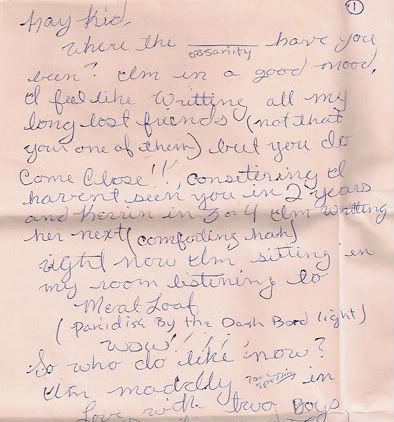 ①
hay Kid,
Where the ______ have you
obsanity
been? Im in a good mood,
I feel like Writting all my
long lost friends (not that
your one of them) but you do
Come Close!!, consitering I
havent seen you in 2 years
and Kerrin in 3 or 4 Im writting
her next (comforting hah)
right now Im sitting in
my room listening to
Meral Loaf
(Paridise By the Dash Bord light)
WOW!!!!
So who do like now?
Im maddly in
Love with two Boys,